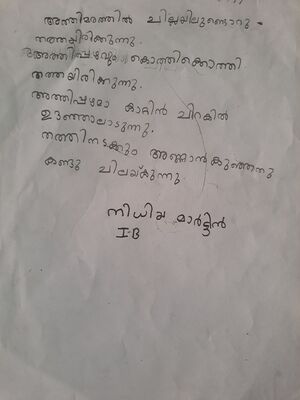 അത്തിമരത്തിൽ ചില്ലയിലുണ്ടൊരു -
തത്തയിരിക്കുന്നു.
അത്തിപ്പഴവും കൊത്തിക്കൊത്തി
തത്തയിരിക്കുന്നു.
അത്തിപ്പഴമാ കാറ്റിൻ ചിറകിൽ
ഊഞ്ഞാലാടുന്നു.
തത്തിനടക്കും അണ്ണാൻകുഞ്ഞതു
കണ്ടു ചിലയ്ക്കുന്നു.
നിധിയ മാർട്ടിൻ
I-B